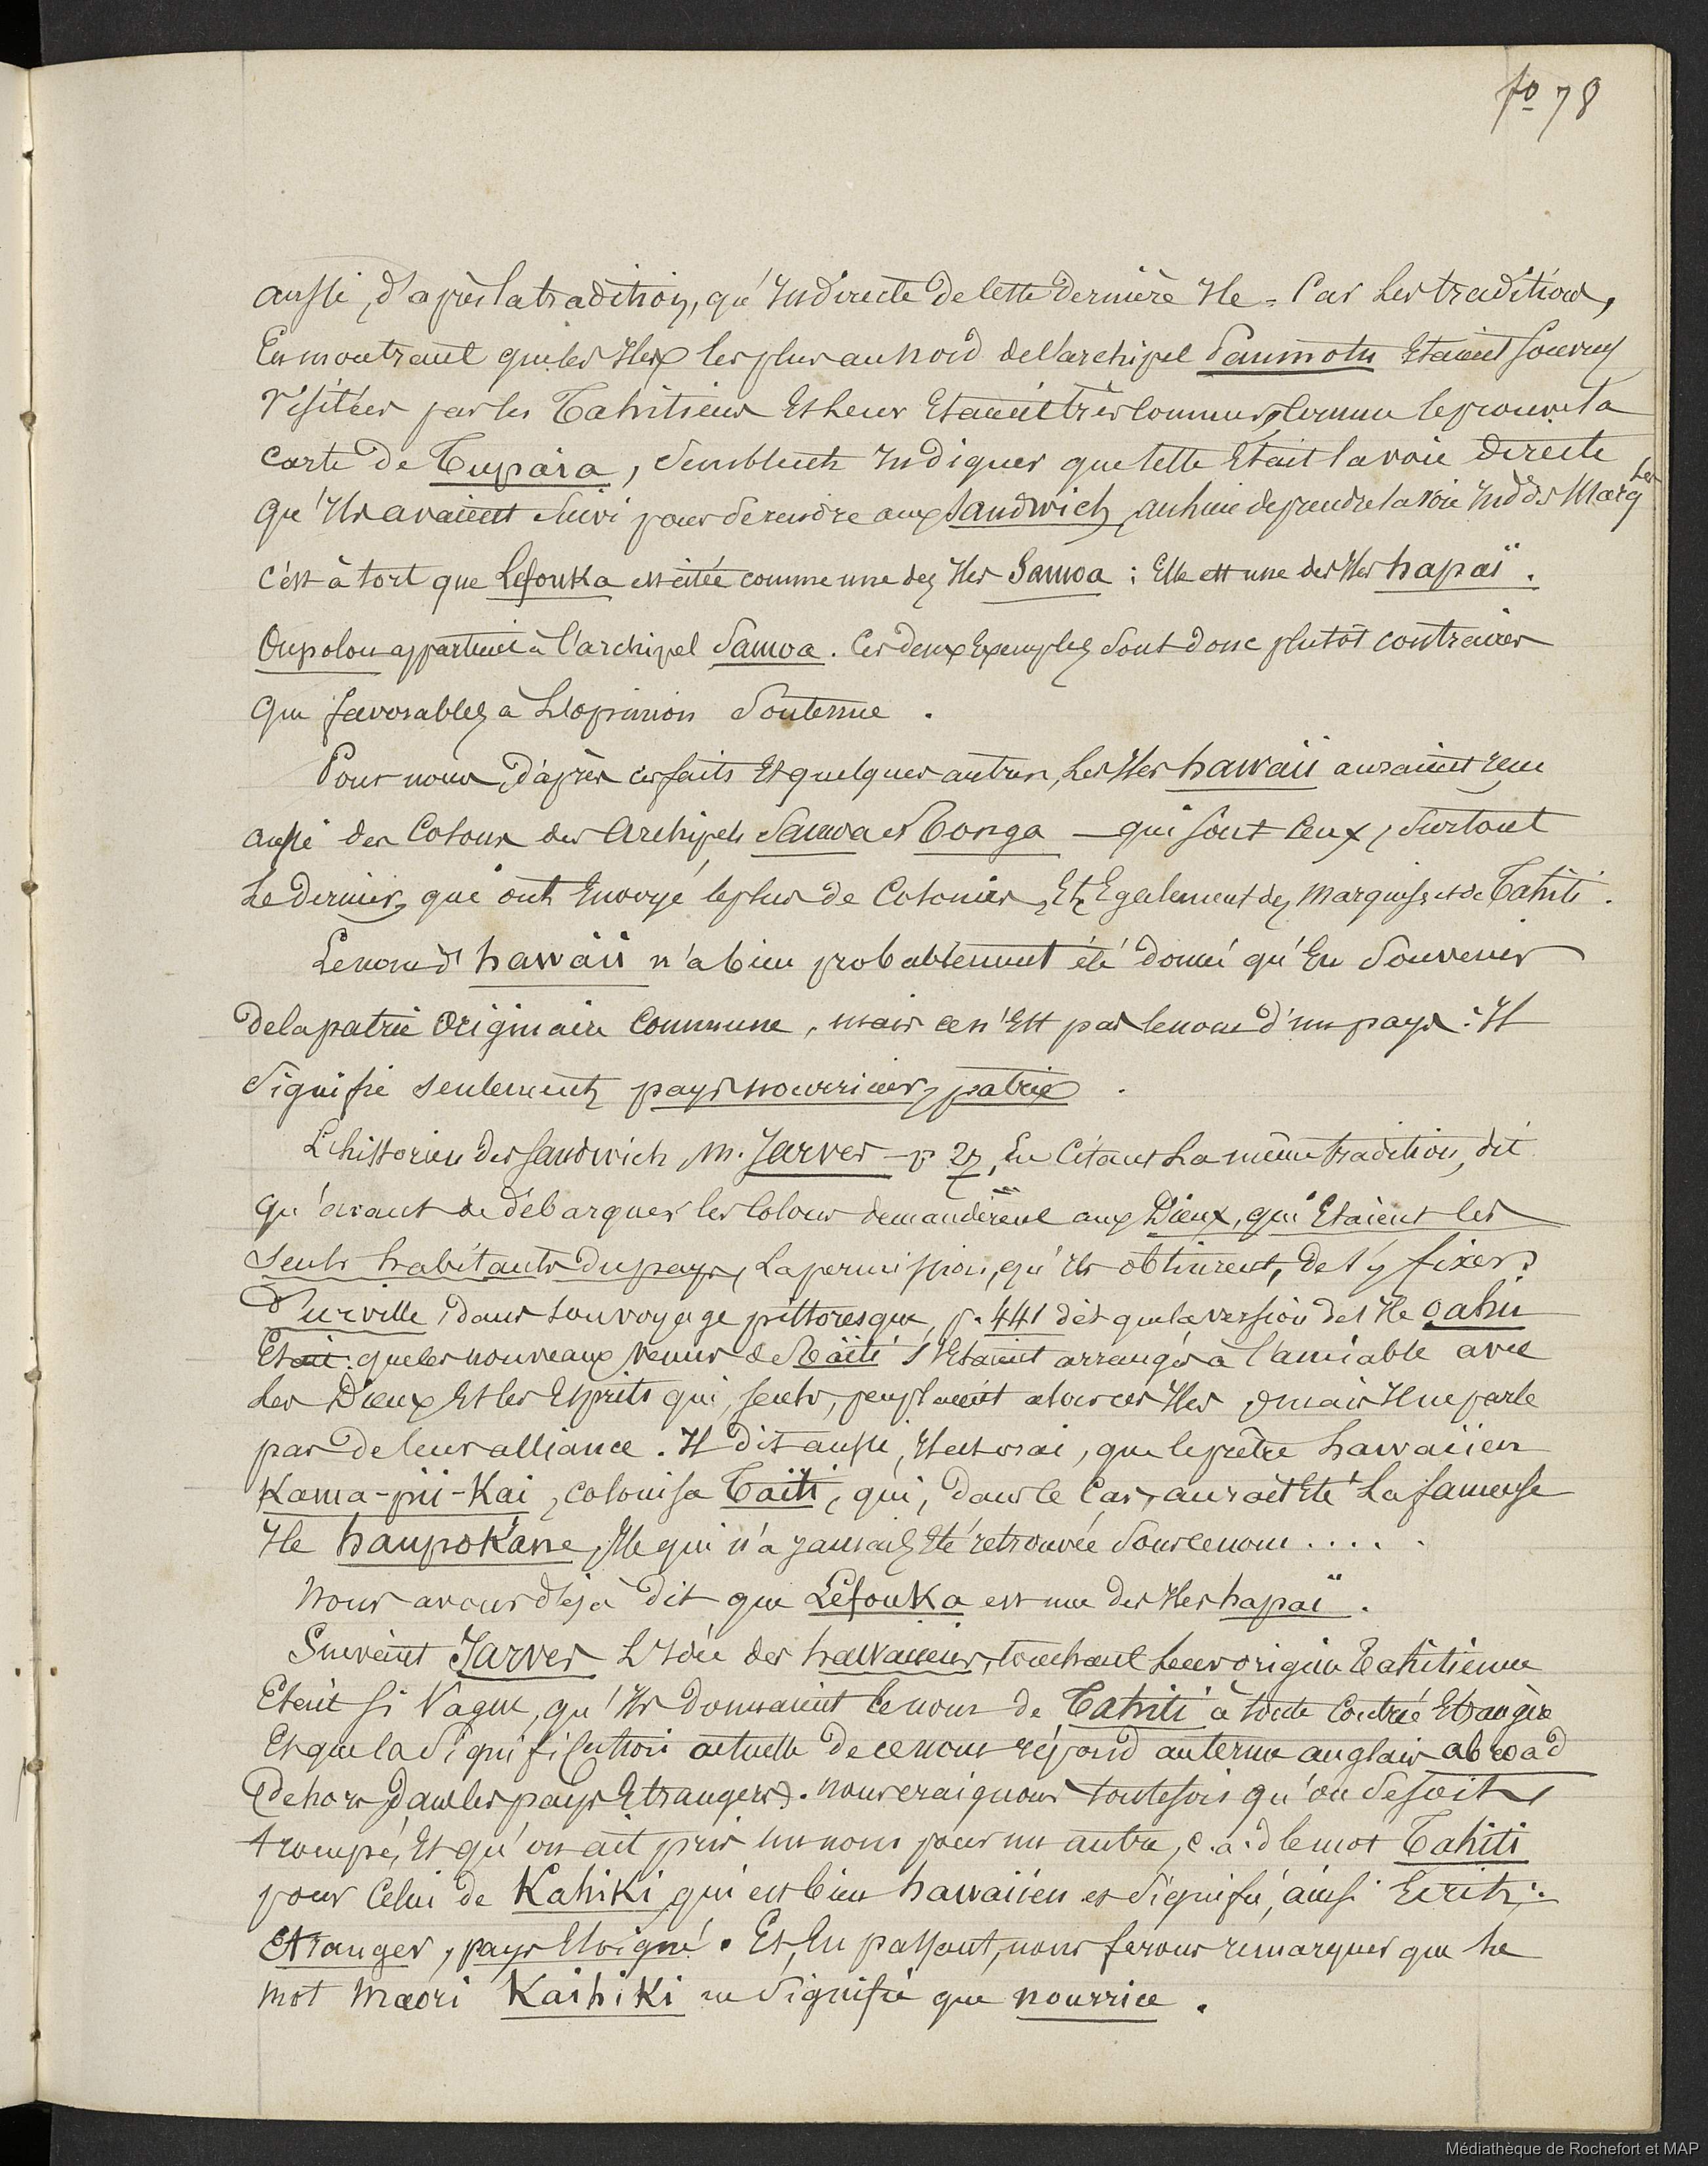 fo 78
aussi, d'après la tradition, qu'Indirecte de cette dernière Ile. Car Les traditions,
En montrant que les Iles les plus au nord de l'archipel Paumotu Etaient souvent
visitées par les Tahitiens Et Leur Etaient très connues, comme le prouve la
carte de Tupaïa, semblent Indiquer que cette Etait la voie directe
qu'Ils avaient suivi pour se rendre aux Sandwich, au lieu de prendre la voie Ind des Marq Les
c'est à tort que Lefouka est citée comme une des Iles Samoa : Elle est une des Iles hapaï.
Oupolou appartient à l'archipel Samoa. Ces deux Exemples sont donc plutôt contraires
que favorables à L'opinion soutenue.
Pour nous, d'après ces faits Et quelques autres, Les Iles hawaii auraient reçu
aussi des Colons des Archipels Samoa et Tonga — qui sont Ceux, surtout
Le dernier, qui ont Envoyé le plus de Colonies, Et Egalement des Marquises et de Tahiti.
Le nom d'hawaii n'a bien probablement été donné qu'En souvenir
de la patrie Originaire Commune, mais ce n'Est pas le nom d'un pays : Il
signifie seulement pays nourricier, patrie.
L'historien des Sandwich, M. Jarves — p 27, En Citant La même tradition, dit
qu'avant de débarquer les Colons demandèrent aux Dieux, qui Etaient les
seuls habitants du pays, La permission, qu'Ils obtinrent, de s'y fixer.
D'urville, dans son voyage pittoresque, p. 441 dit que la version de l'Ile oahu
Etait : que les nouveaux venus de Taïti s'Etaient arrangés à l'amiable avec
Les Dieux Et les Esprits qui, seuls, peuplaient alors ces Iles, mais Il ne parle
pas de leur alliance. Il dit aussi, Il est vrai, que le prêtre hawaiien
Kama-pii-Kai, colonisa Taïti, qui, dans le Cas, aurait Eté La fameuse
Ile haupokane, Ile qui n'a jamais Eté retrouvée sous ce nom.....
Nous avons déjà dit que Lefouka est une des Iles hapaï.
Suivant Jarves L'Idée des hawaiiens, touchant Leur origine Tahitienne
Etait si Vague, qu'Ils donnaient le nom de Tahiti à toute Contrée Etrangère
Et que la signification actuelle de ce nom répond au terme anglais abroad
(dehors, dans les pays Etrangers). Nous craignons toutefois qu'on se soit
trompé, Et qu'on ait pris un nom pour un autre, c. à. d le mot Tahiti
pour Celui de Kahiki, qui est bien hawaiien et signifie, ainsi Ecrit :
Etranger, pays Eloigné. Et, En passant, nous ferons remarquer que Le
mot Maori Kaihiki ne signifie que nourrice.
Médiathèque de Rochefort et MAP